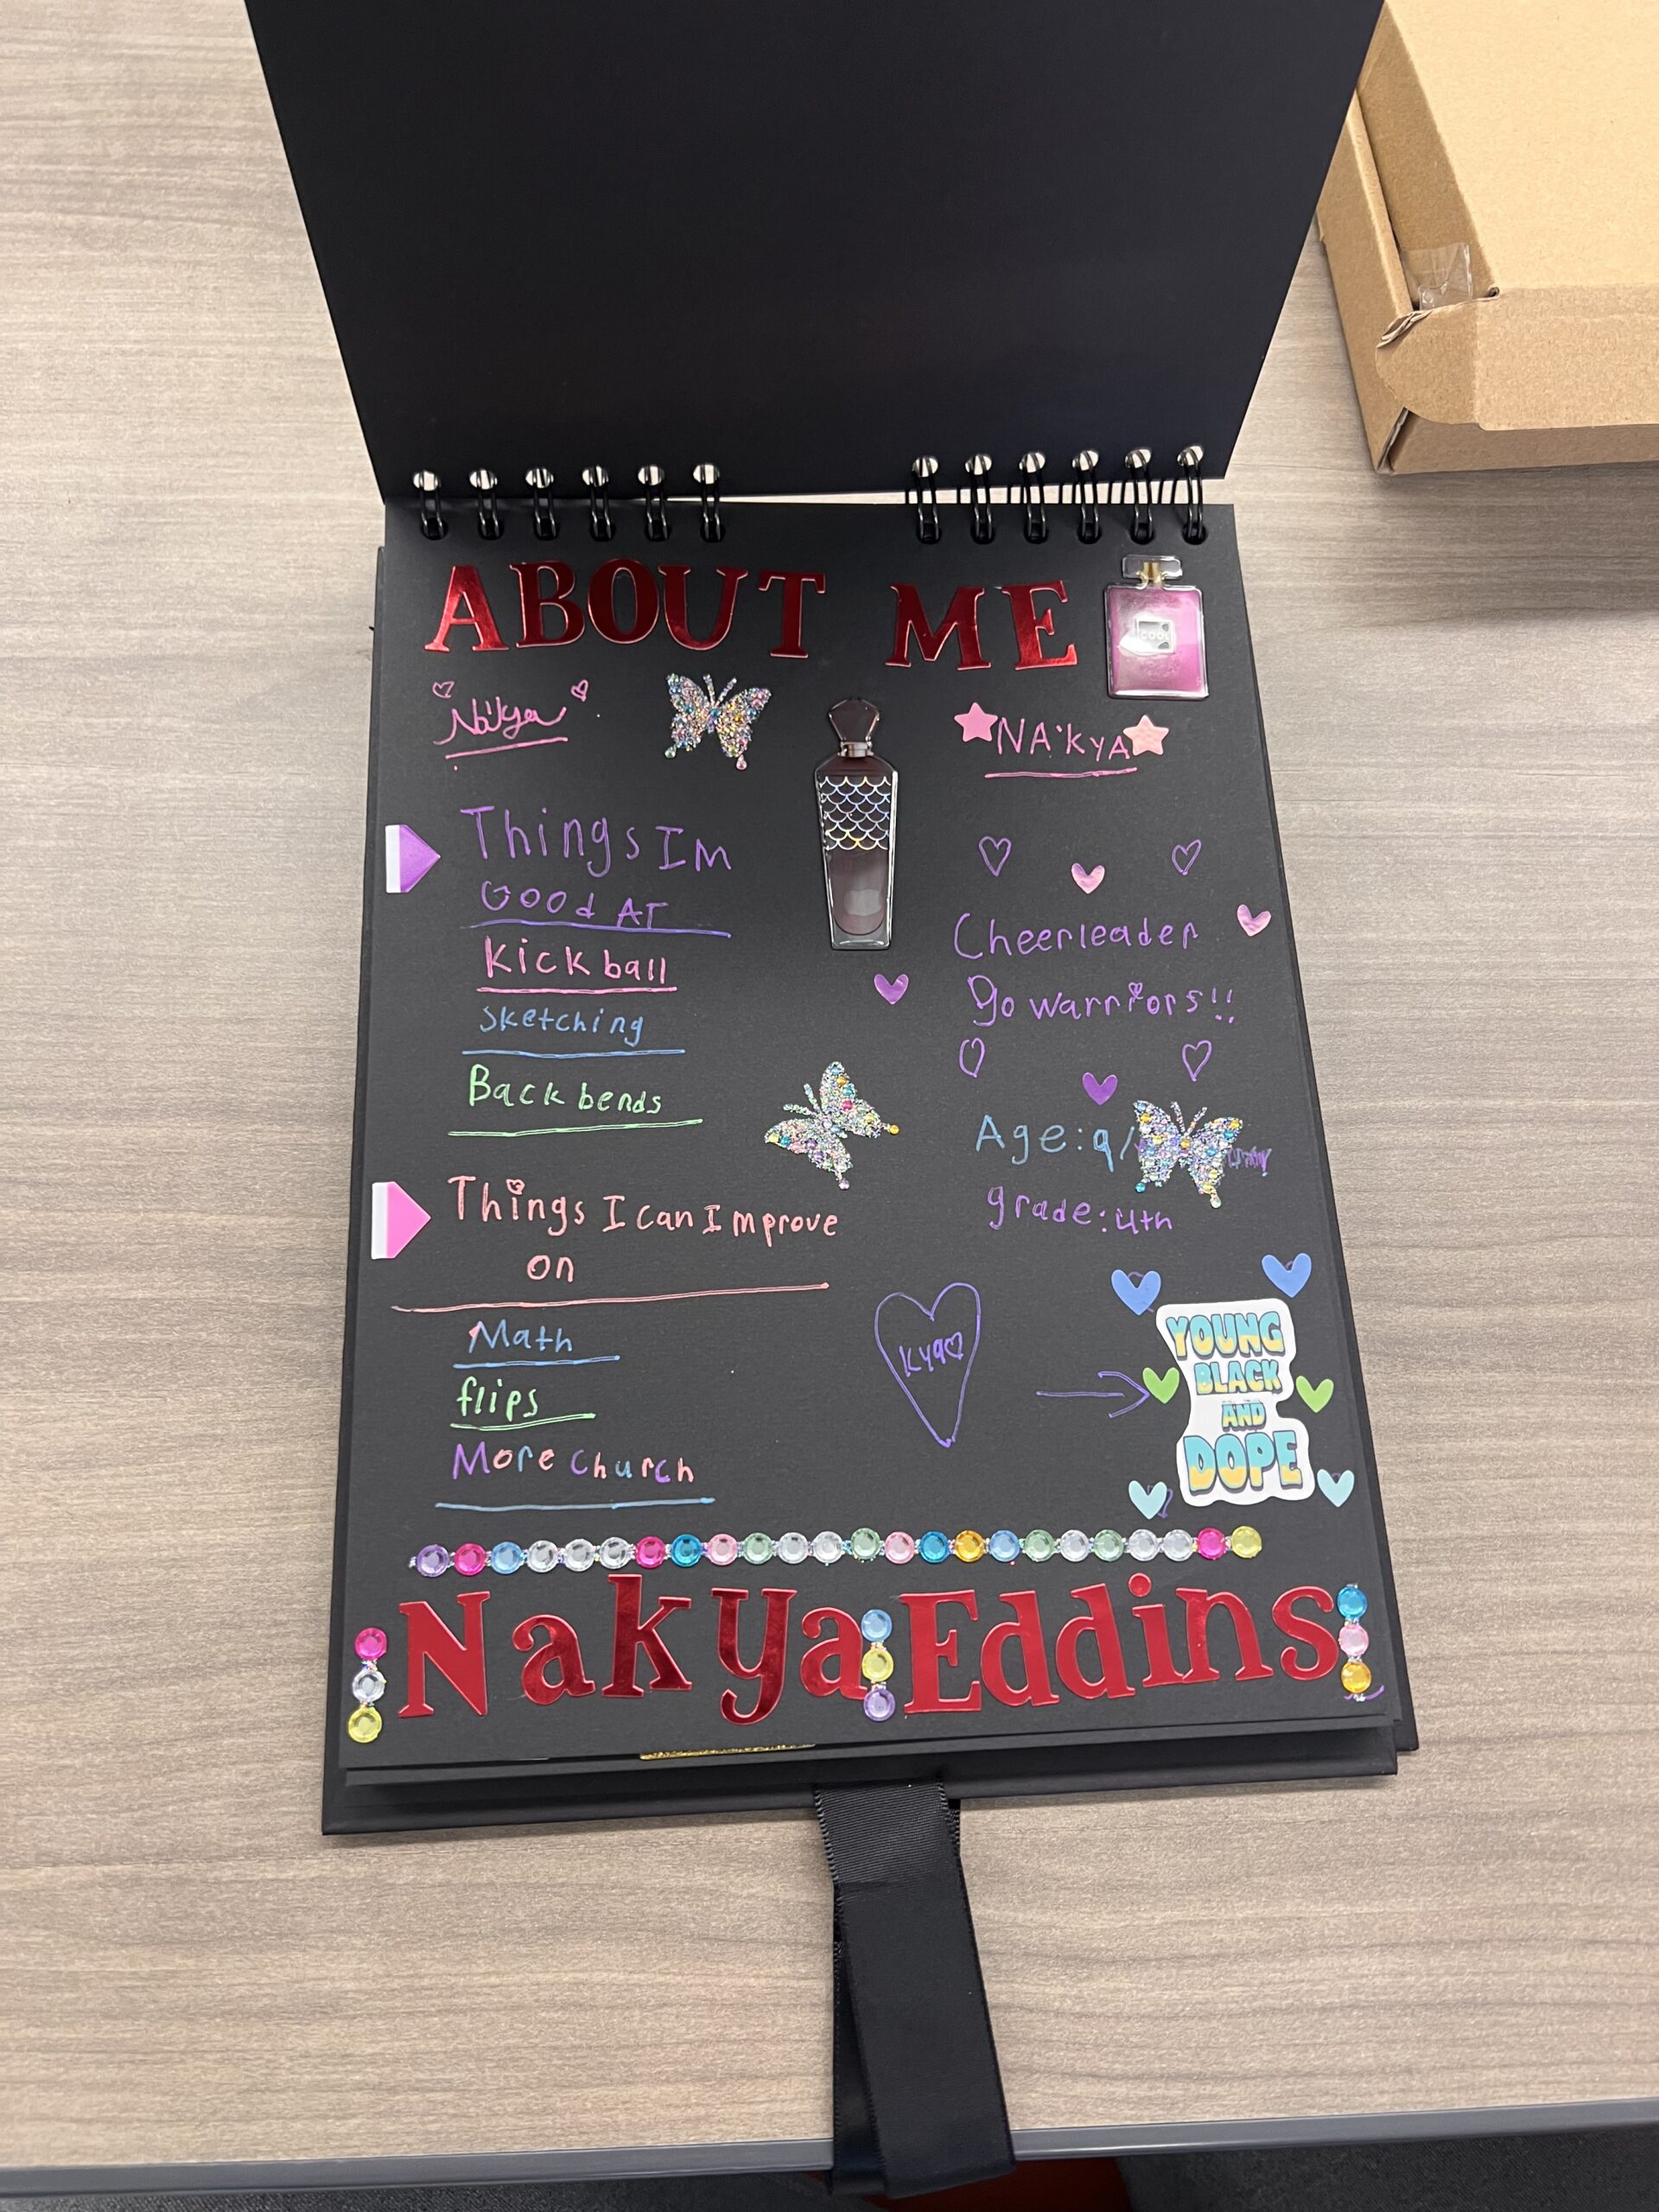 ABOUT ME
COCO
Na'kya
NA'KYA
Things Im
Good AT
Kickball
Sketching
Back bends
Cheerleader
go warriors!!
Age: 9/
grade: 4th
Things I can Improve
on
Math
flips
More church
Kya
YOUNG
BLACK
AND
DOPE
Nakya Eddins